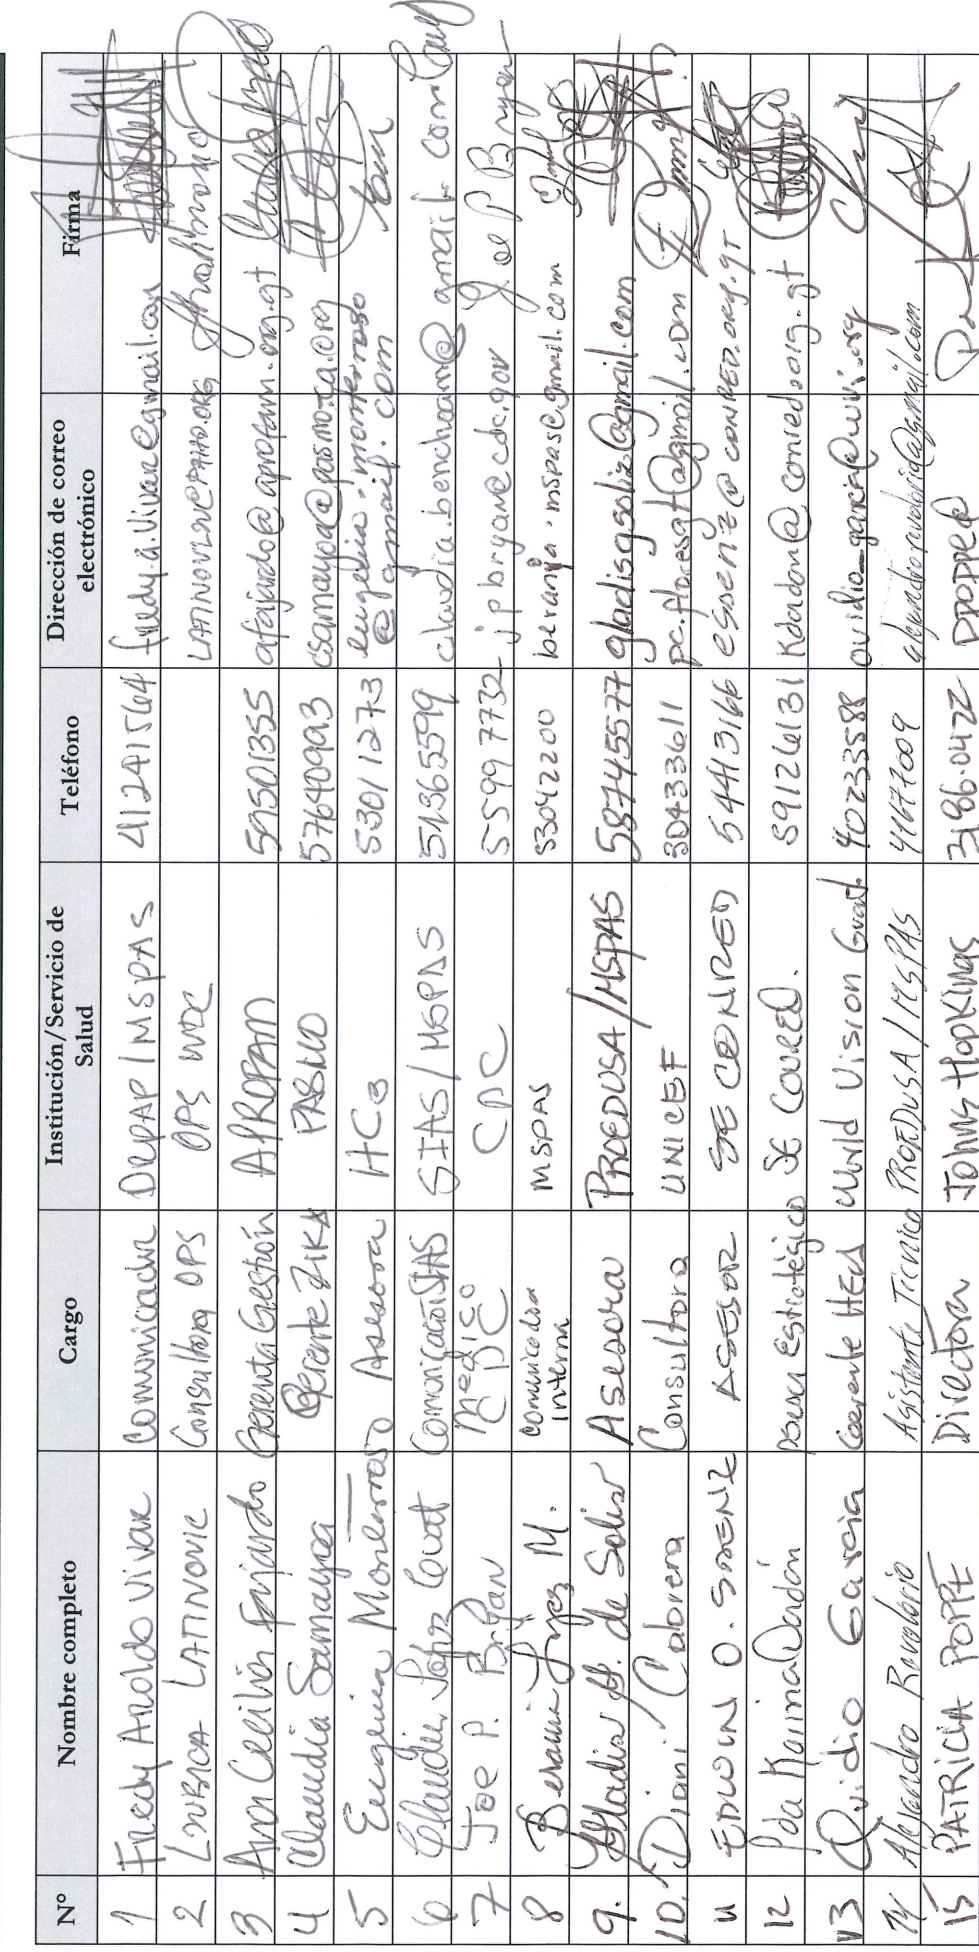 N° Nombre completo Cargo Institución/Servicio de Salud Teléfono Dirección de correo electrónico Firma
1 Fredy Anoldo Vivar Comunicador DEPAP/MSPAS 41241564 fredy.a.vivar@gmail.com
2 LJUBICA LATINOVIC Consultora OPS OPS WDC LATINOVLJU@PAHO.ORG
3 Ana Cecilia Fajardo Gerenta Gestión APROFAM 59501355 afajardo@aprofam.org.gt
4 Claudia Samayoa Gerente ZIKA PASMO 57640903 csamayoa@pasmo-ca.org
5 Eugenia Monterroso Asesora HC3 53011273 eugenia.monterroso@gmail.com
6 Claudia López Comunicación SIAS SIAS/MSPAS 51365599 @gmail.com
7 Joe P. Bryan Médico CDC CDC 5599 7732 jpbryan@cdc.gov Joe P Bryan
8 López M. Comunicadora interna MSPAS 53042200 @gmail.com
9. Gladis M. de Solis Asesora PROEDUSA/MSPAS 58745577 gladisgsoliz@gmail.com
10. Diani Cabrera Consultora UNICEF 30433611 pc.floresgt@gmail.com
11 EDWIN O. SAENZ ASESOR SE CONRED 54413166 essenz@conred.org.gt
12 Ida Karina Dardón Estratégico SE CONRED. 59126131 kdardon@conred.org.gt
13 Ovidio Garcia Gerente HEA World Vision Guat. 40233588 ovidio_garcia@wvi.org
14 Alejandro Revolorio Asistente Técnico PROEDUSA/MSPAS 41677009 alejandrorevolorio@gmail.com
15 PATRICIA POPPE Directora Johns Hopkings 3186.0472 PPOPPE@